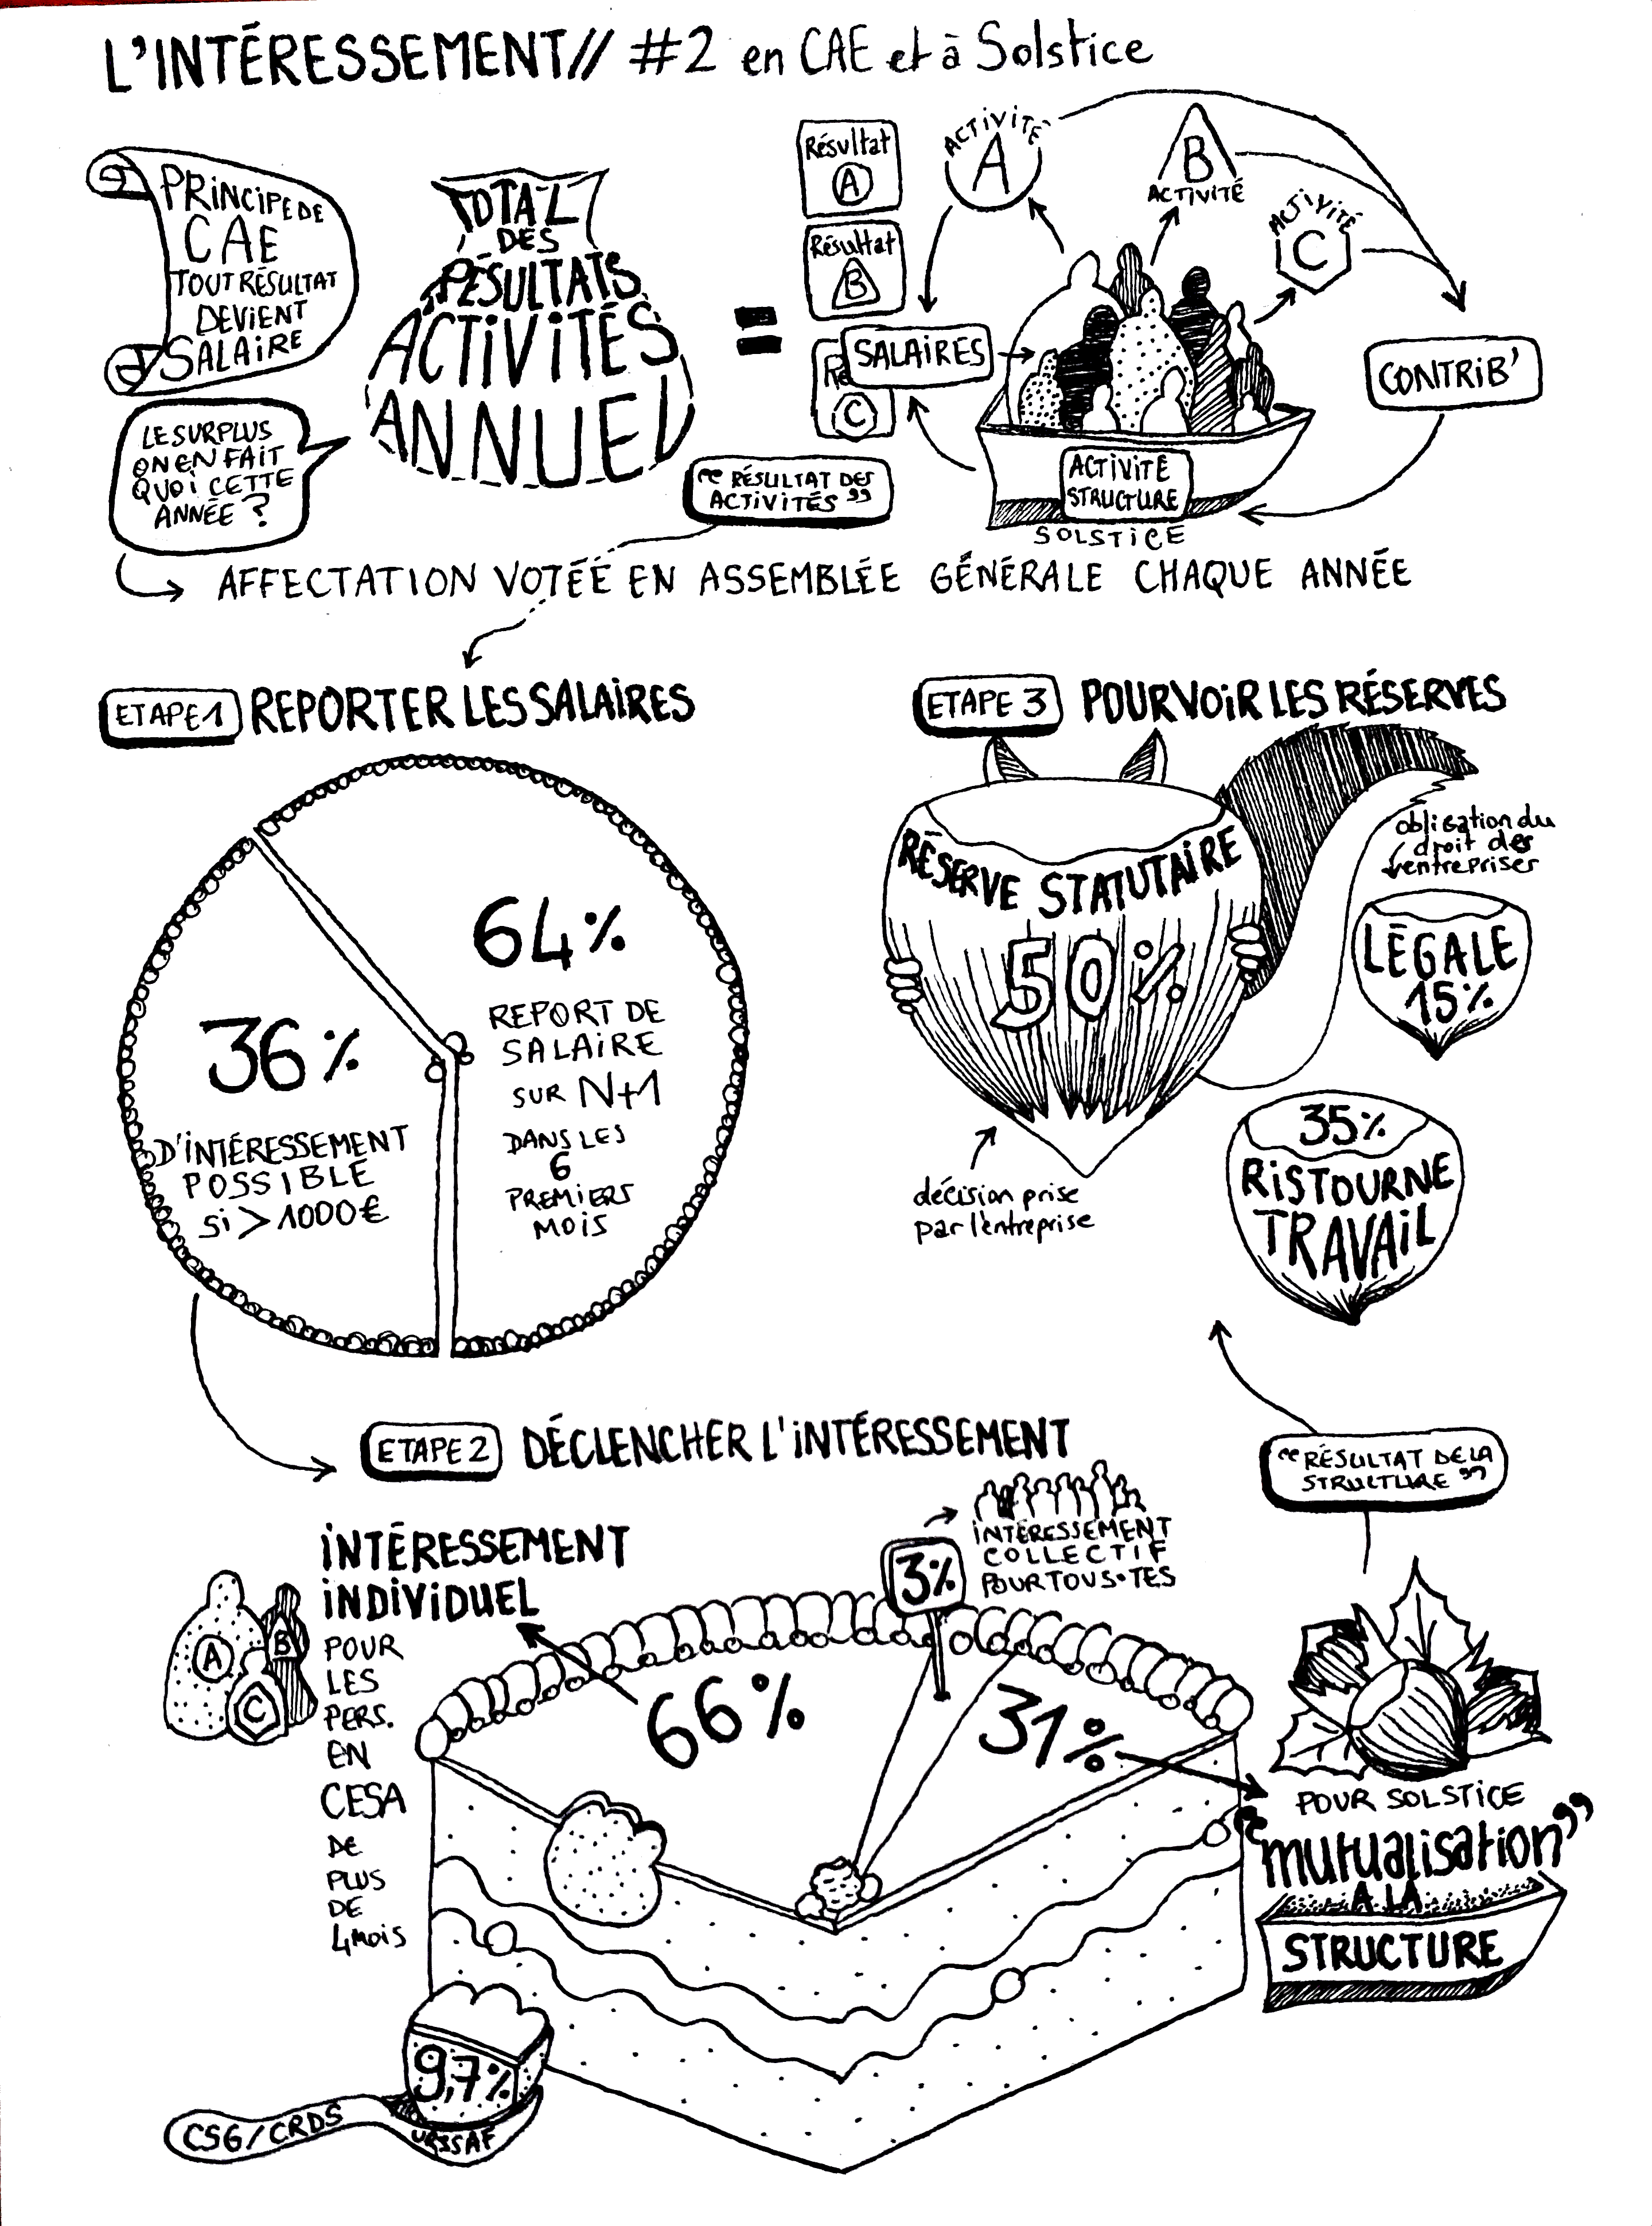 L'INTÉRESSEMENT// #2 en CAE et à Solstice
PRINCIPE DE
CAE
TOUT RÉSULTAT
DEVIENT
SALAIRE
LE SURPLUS
ON EN FAIT
QUOI CETTE
ANNÉE ?
TOTAL
DES
RÉSULTATS
ACTIVITÉS
ANNUEL
=
Résultat
A
Résultat
B
Ré
C
SALAIRES
ACTIVITÉ
A
B
ACTIVITÉ
ACTIVITÉ
C
CONTRIB'
ACTIVITÉ
STRUCTURE
SOLSTICE
“ RÉSULTAT DES
ACTIVITÉS ”
AFFECTATION VOTÉE EN ASSEMBLÉE GÉNÉRALE CHAQUE ANNÉE
ETAPE 1 REPORTER LES SALAIRES
64%
REPORT DE
SALAIRE
SUR N+1
DANS LES
6
PREMIERS
MOIS
36%
D'INTÉRESSEMENT
POSSIBLE
Si > 1000€
ETAPE 3 POURVOIR LES RÉSERVES
RÉSERVE STATUTAIRE
50%
décision prise
par l'entreprise
obligation du
droit des
entreprises
LÉGALE
15%
35%
RISTOURNE
TRAVAIL
ETAPE 2 DÉCLENCHER L'INTÉRESSEMENT
“ RÉSULTAT DE LA
STRUCTURE ”
INTÉRESSEMENT
INDIVIDUEL
POUR
LES
PERS.
EN
CESA
DE
PLUS
DE
4 MOIS
A
B
C
3%
INTÉRESSEMENT
COLLECTIF
POUR TOUS•TES
66%
31%
POUR SOLSTICE
“mutualisation”
A LA
STRUCTURE
9,7%
CSG/CRDS
URSSAF